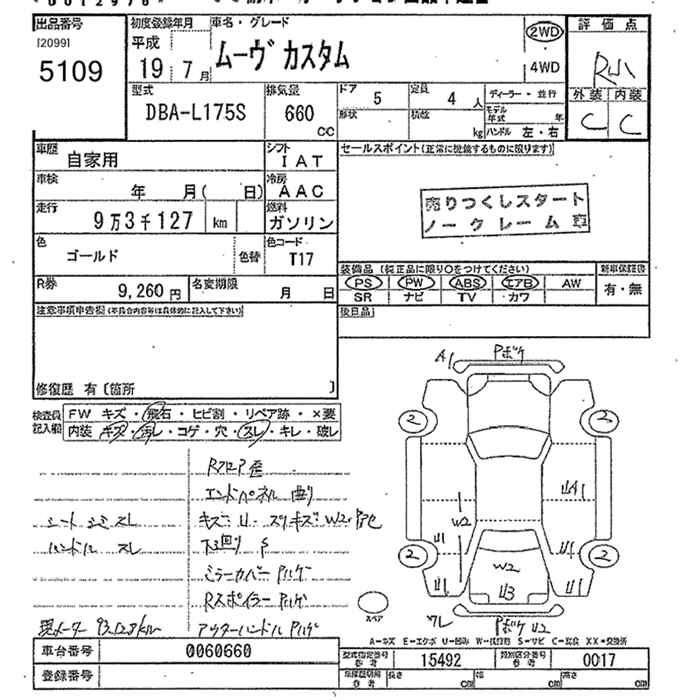 出品番号
[20991
5109
初度登録年月
平成
19年7月
車名・グレード
ムーヴ カスタム
2WD
4WD
評価点
外装 内装
C C
型式
DBA-L175S
排気量
660
CC
ドア 5
定員 4人
ディーラー・並行
形状
積載 kg
モデル年式 年
ハンドル 左・右
車歴
自家用
シフト
IAT
セールスポイント(正常に機能するものに限ります)
売りつくしスタート
ノークレーム
車検
年 月( 日)
冷房
AAC
走行
9万3千127 km
燃料
ガソリン
色
ゴールド
色替
色コード
T17
装備品(純正品に限り○をつけてください)
新車保証書
PS PW ABS エアB AW
有・無
SR ナビ TV カワ
R券
9,260円
名変期限
月 日
後日品
注意事項申告欄(不具合内容等は具体的に記入して下さい)
修復歴 有〔箇所 〕
検査員記入欄
FW キズ・飛石・ヒビ割・リペア跡・×要
内装 キズ・汚レ・コゲ・穴・スレ・キレ・破レ
Rフロア 歪
エンドパネル 曲り
シート シミ スレ
ハンドル スレ
ミラーカバー
Rスポイラー
アウターハンドル
A1
2
2
UA1
W2
U1
U1
2
2
W2
U1
U3
U1
スペア
ワレ
A-キズ E-エクボ U-凹み W-板跡 S-サビ C-腐食 XX-交換済
車台番号
0060660
登録番号
型式指定番号 参考
15492
類別区分番号 参考
0017
車庫証明用 参考
長さ cm
幅 cm
高さ cm